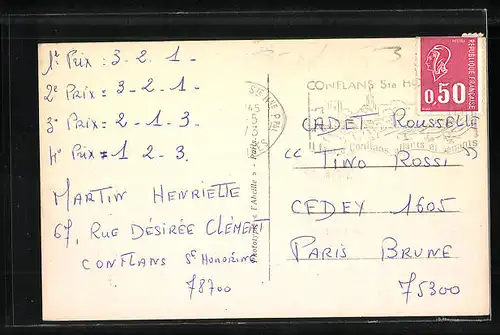 1r Prix : 3 - 2 - 1 -
2e Prix = 3 - 2 - 1 -
3e Prix = 2 - 1 - 3.
4e Prix = 1 2 - 3.
MARTIN HENRIETTE
67, RUE DÉSIRÉE CLÉMENT
CONFLANS Ste Honorine
78700
3
CONFLANS Ste
REPUBLIQUE FRANÇAISE
0,50
CADET ROUSSELLE
“ TINO ROSSI ”
CEDEX 1605
PARIS BRUNE
75300